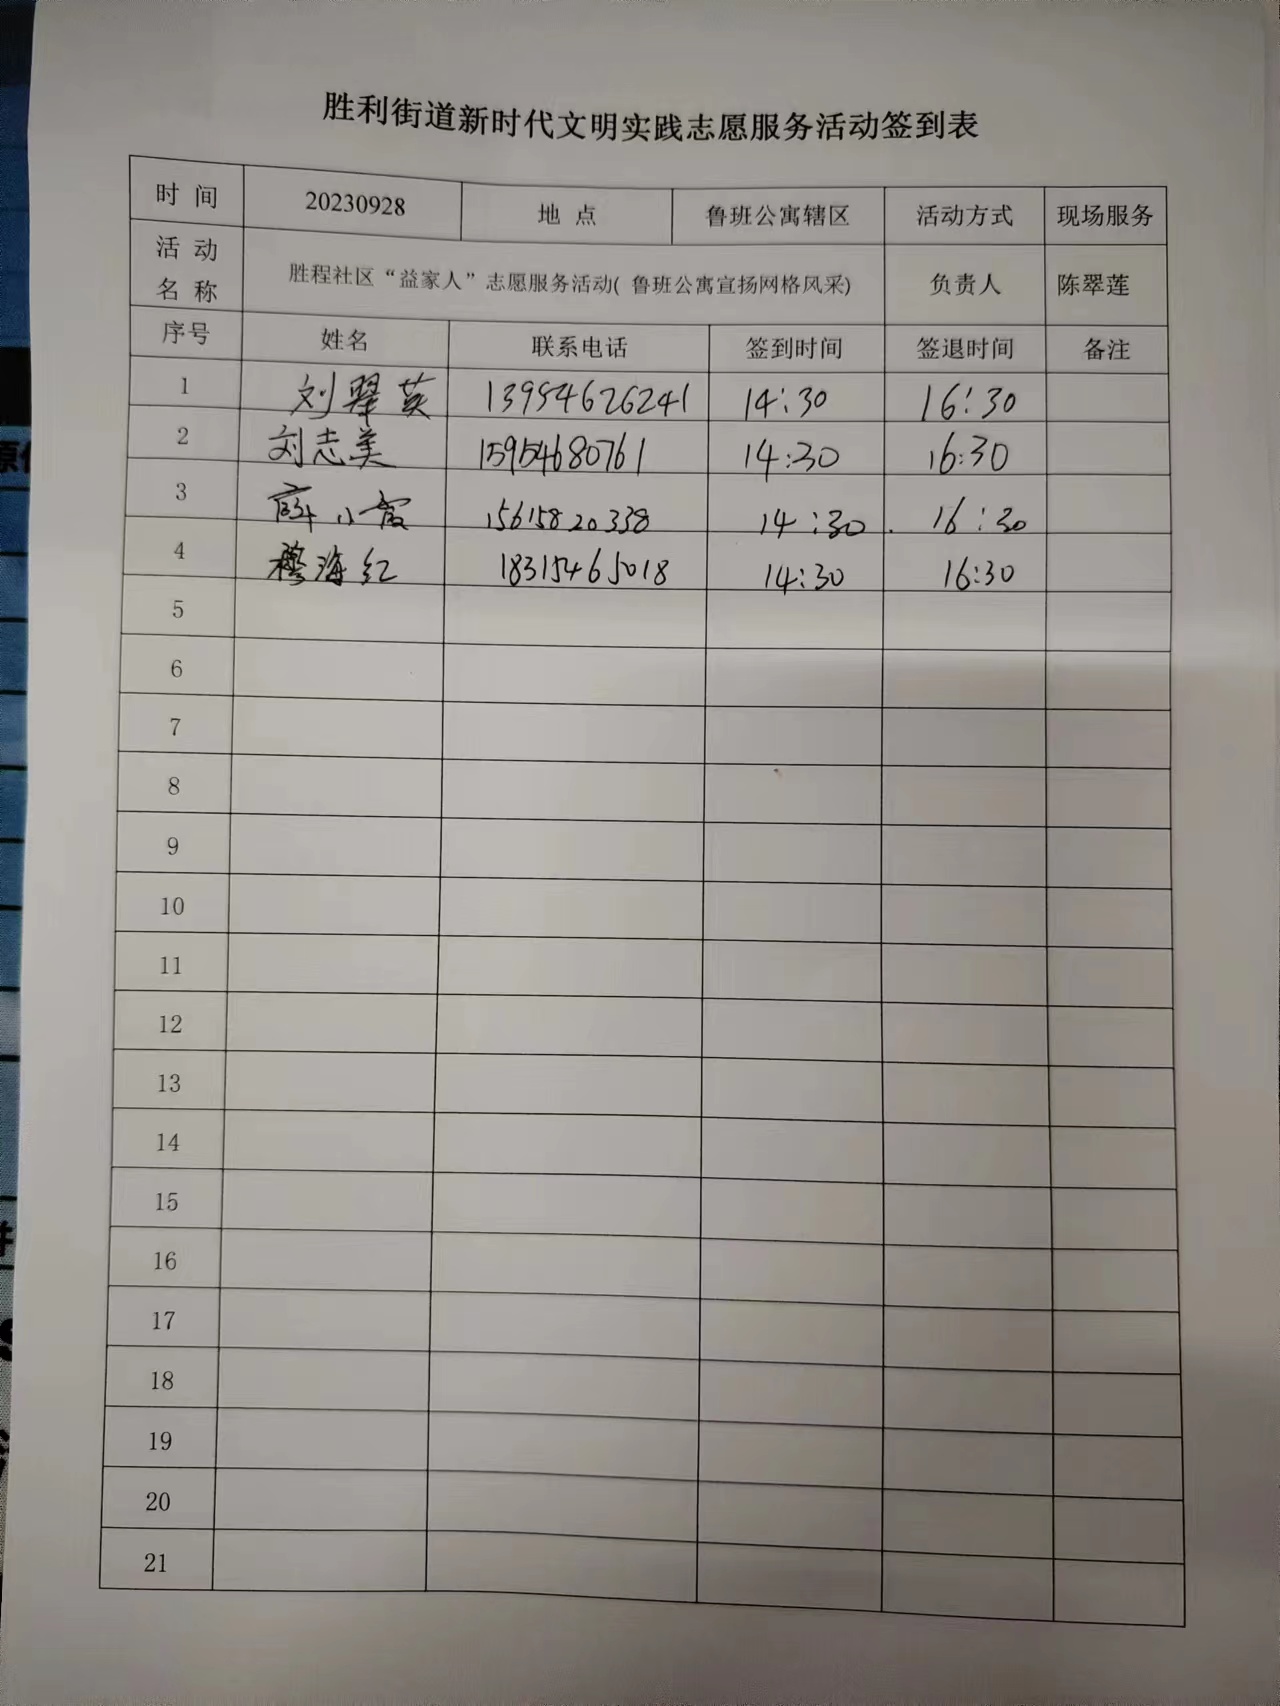 胜利街道新时代文明实践志愿服务活动签到表
时 间 20230928 地 点 鲁班公寓辖区 活动方式 现场服务
活 动 名 称 胜程社区“益家人”志愿服务活动( 鲁班公寓宣扬网格风采) 负责人 陈翠莲
序号 姓名 联系电话 签到时间 签退时间 备注
1 刘翠英 13954626241 14:30 16:30
2 刘志美 15954680761 14:30 16:30
3 薛小霞 15615820338 14:30 16:30
4 穆海红 18315465018 14:30 16:30
5
6
7
8
9
10
11
12
13
14
15
16
17
18
19
20
21